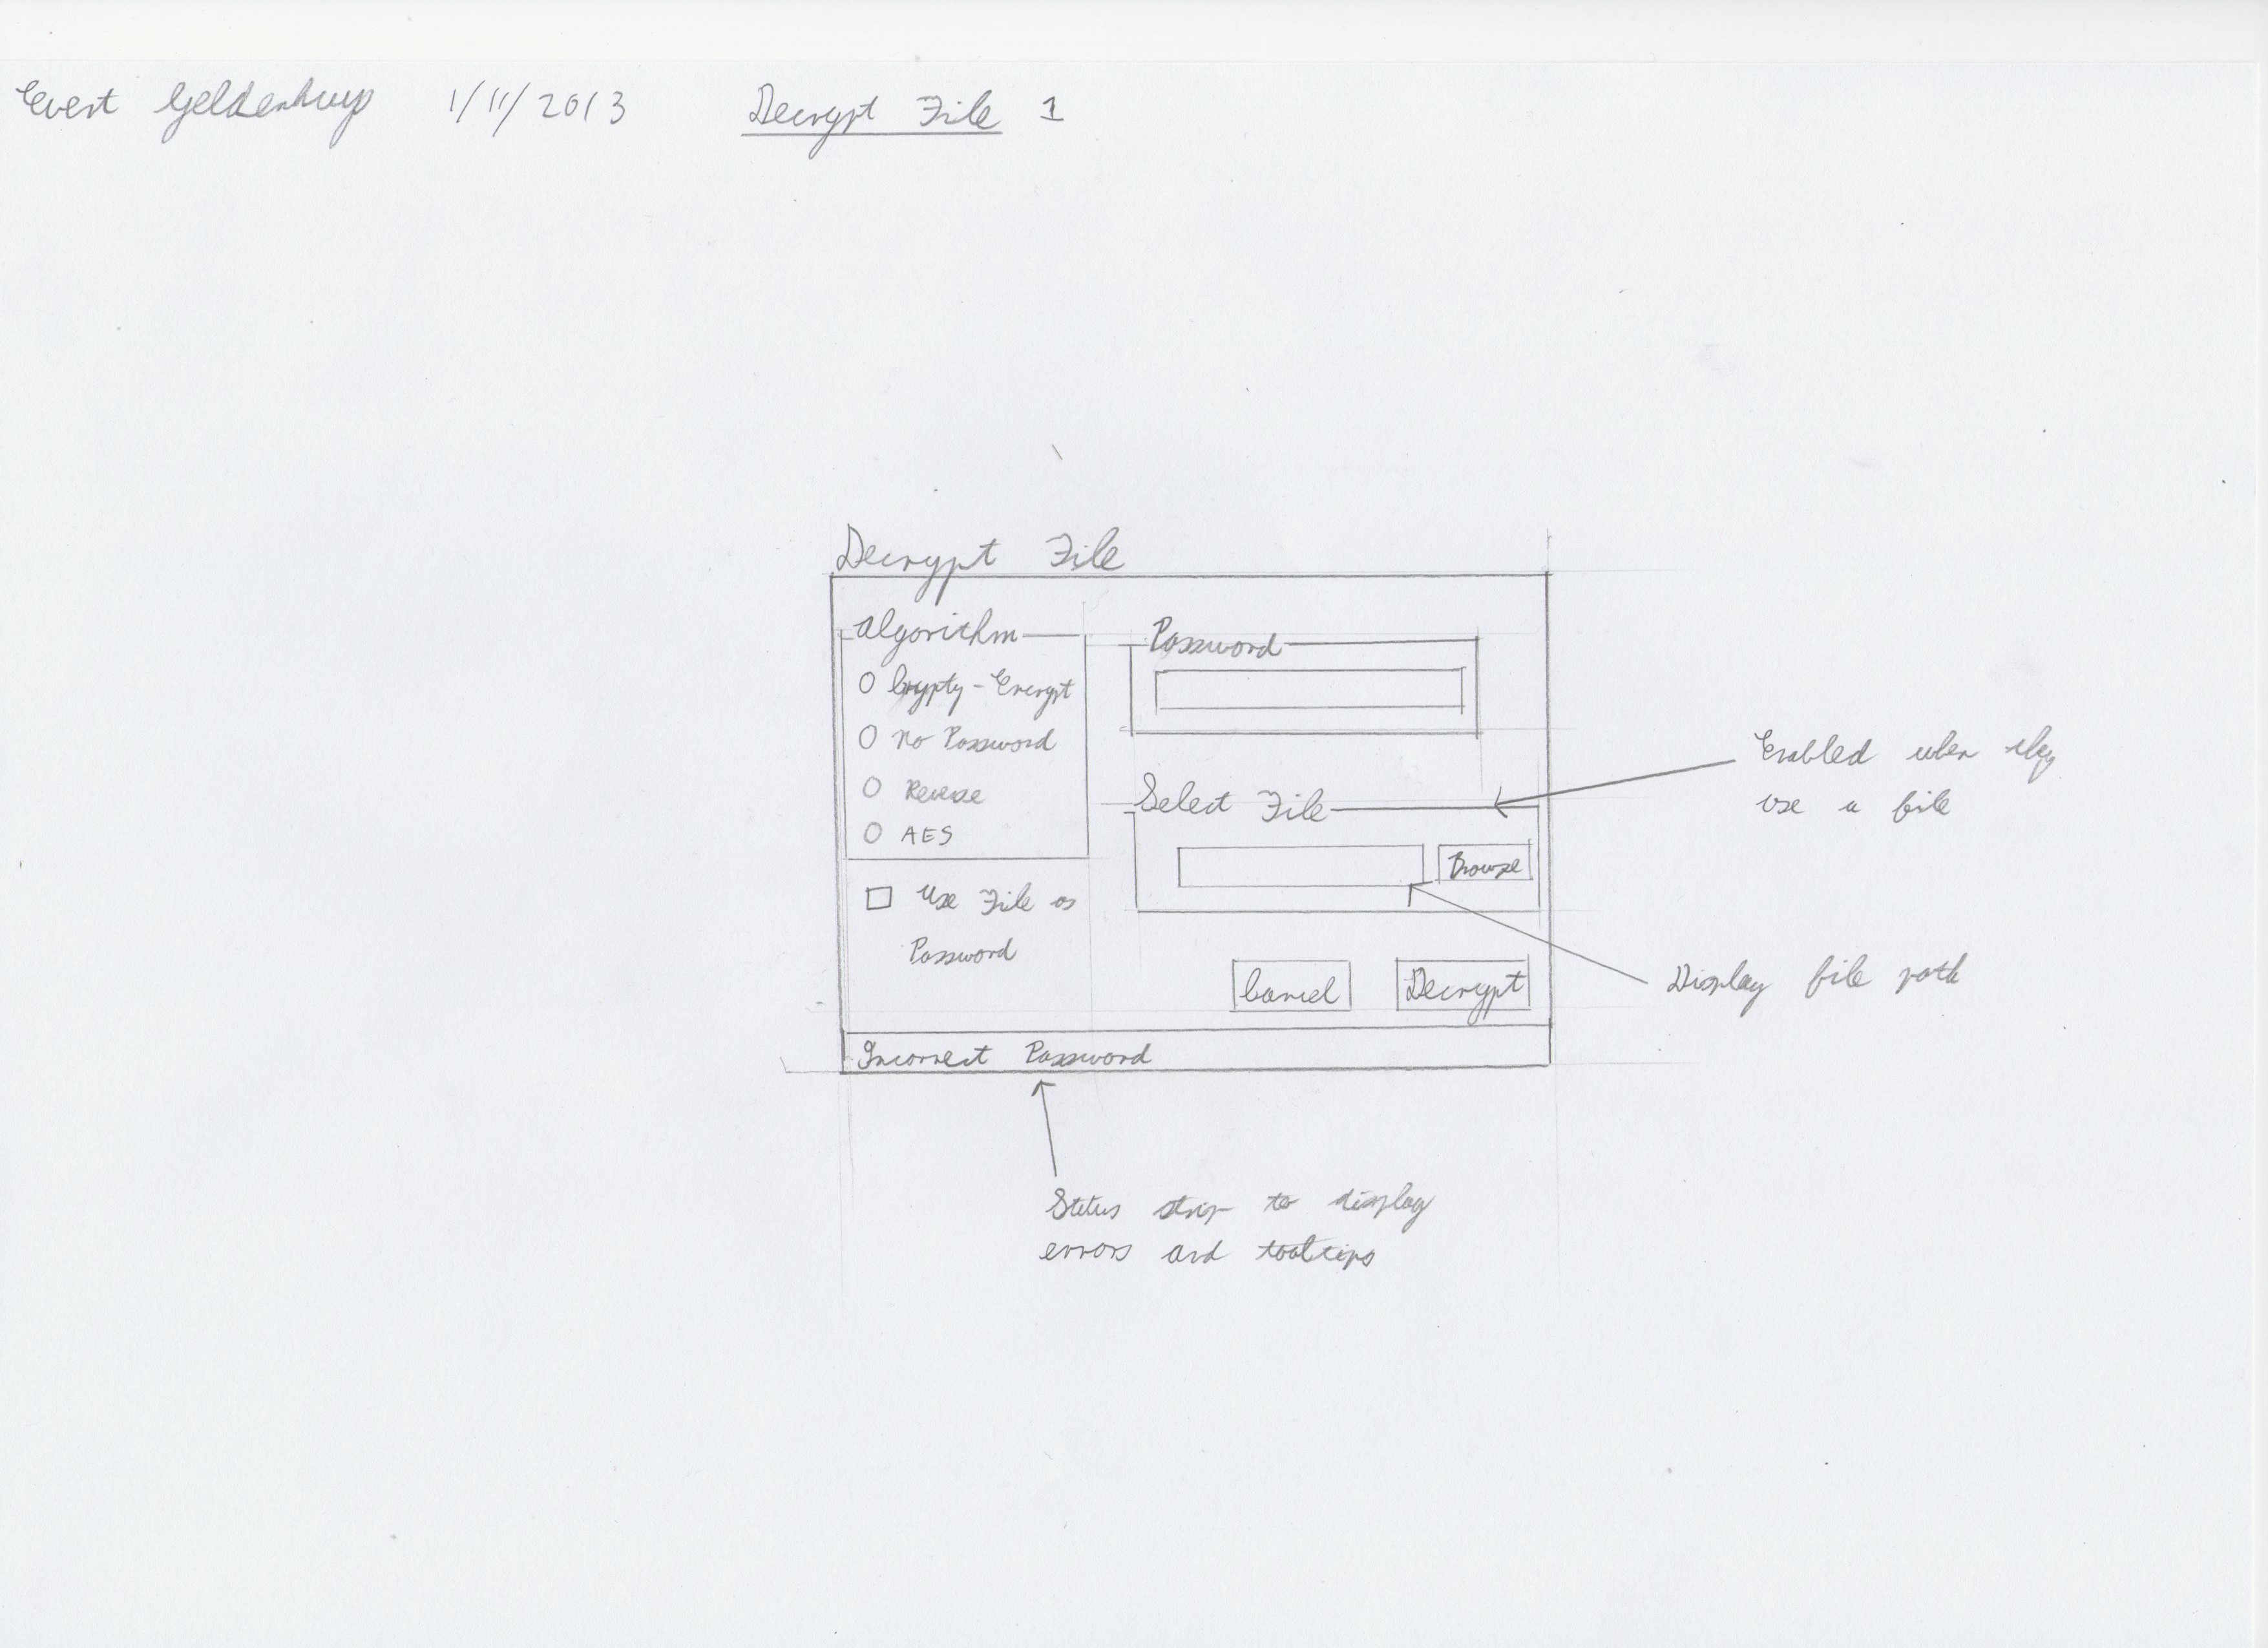 Evert Geldenhuys 1/11/2013 Decrypt File 1
Decrypt File
Algorithm
Crypty-Encrypt
No Password
Reverse
AES
Use File as
Password
Password
Select File
Browse
Cancel Decrypt
Incorrect Password
Enabled when they
use a file
Display file path
Status strip to display
errors and tooltips